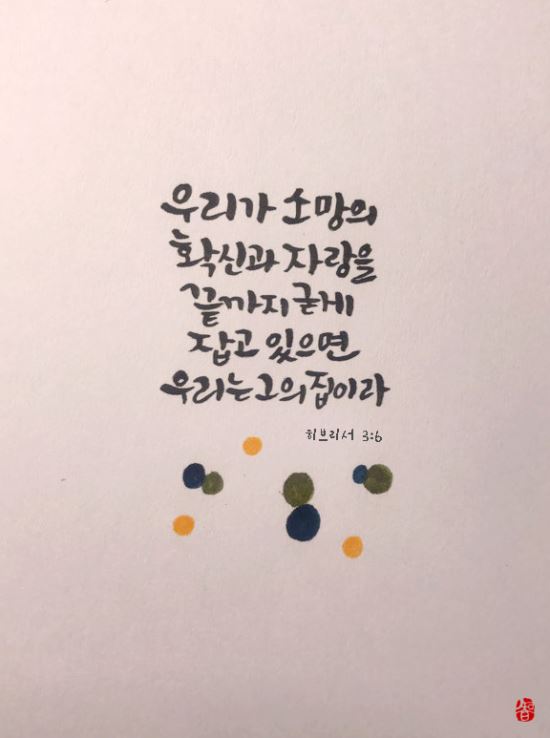 우리가 소망의
확신과 자랑을
끝까지 굳게
잡고 있으면
우리는 그의 집이라
히브리서 3:6